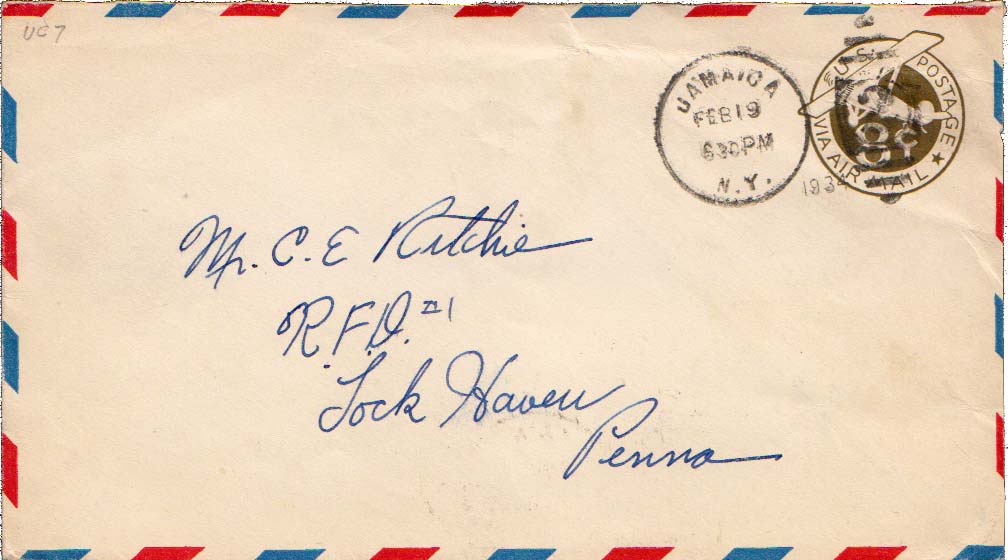 UC7
JAMAICA
FEB 19
630PM
N.Y.
1934
U.S. POSTAGE
8¢
VIA AIR MAIL
Mr. C. E Ritchie
R.F.D. #1
Lock Haven
Penna